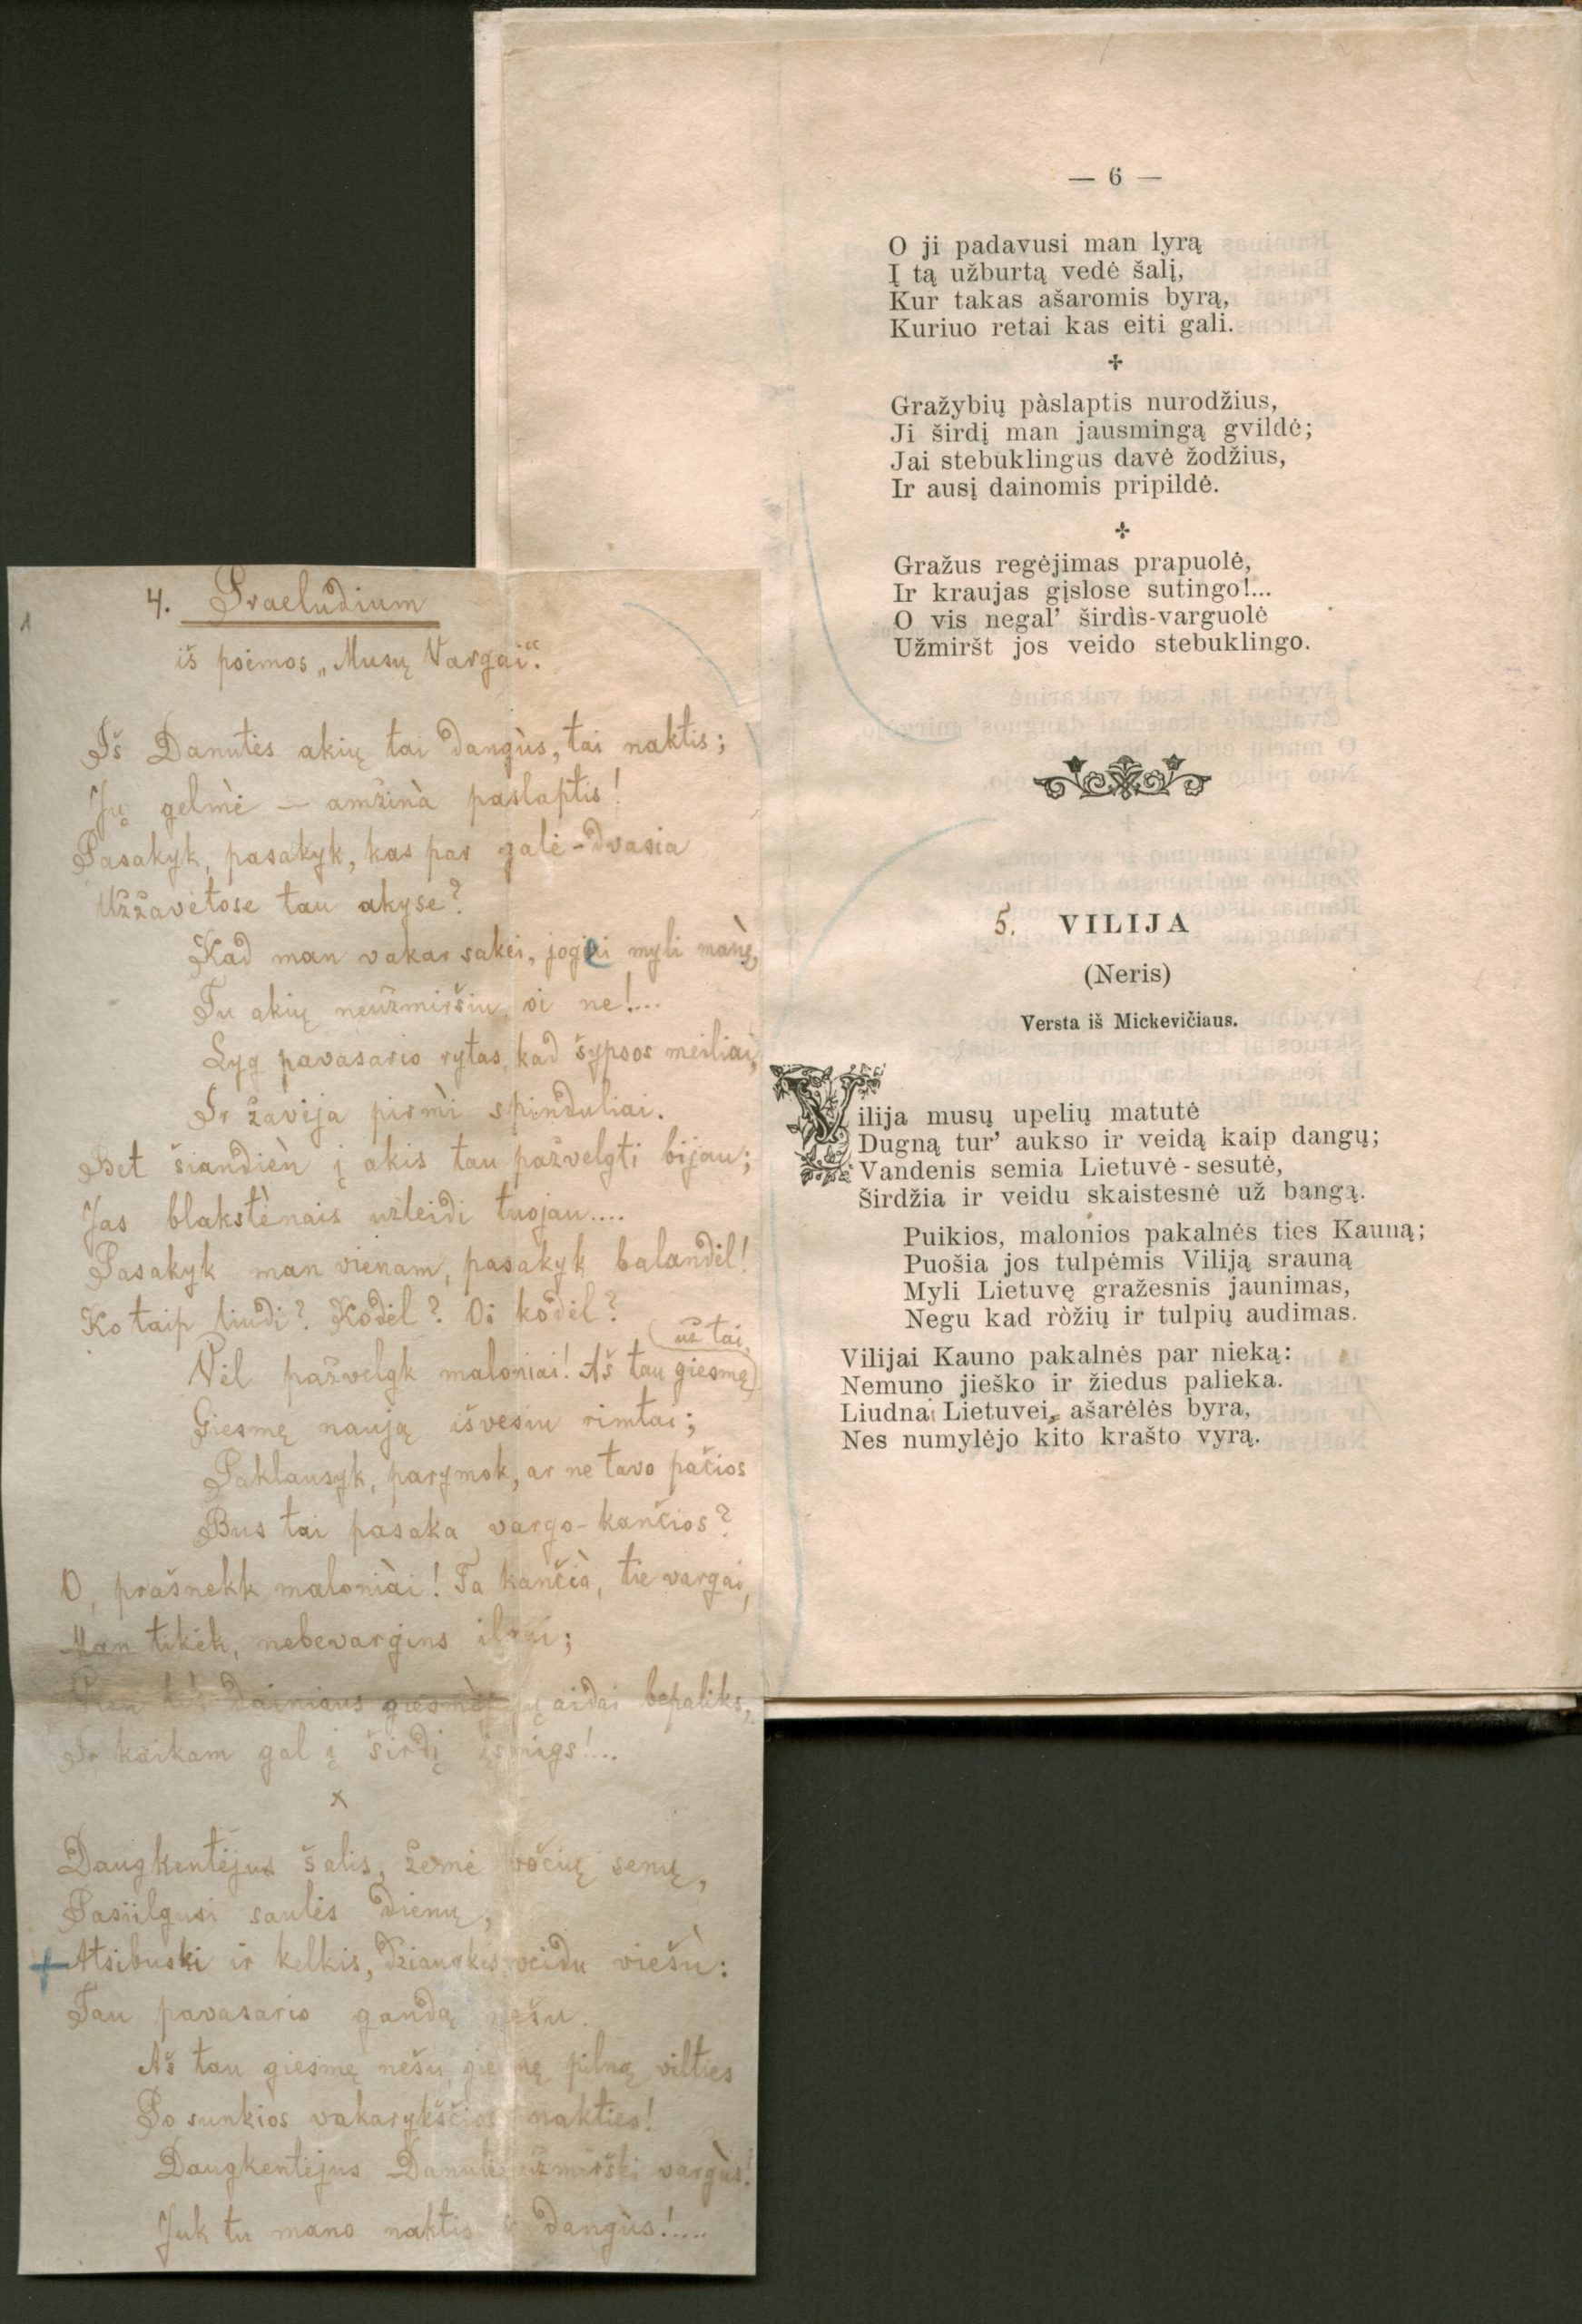 4. Praeludium
iš poėmos „Musų Vargai“.
Iš Danutės akių tai dangùs, tai naktis;
Jų gelmė — amžinà paslaptis!
Pasakyk, pasakyk, kas par galė-dvasia
Užžavėtose tau akyse?
Kad man vakar sakei, jogei myli manę,
Tu akių neužmiršiu, oi ne!...
Lyg pavasario rytas, kad šypsos meiliai,
Ir žavėja pirmì spinduliai.
Bet šiandièn į akis tau pažvelgti bijau;
Jas blakstėnais užleidi tuojau....
Pasakyk man vienam, pasakyk balandėl!
Ko taip liudi? Kodėl? Oi kodėl?
už tai
Vėl pažvelgk maloniai! Aš tau giesmę
Giesmę naują išvesiu rimtai;
Paklausyk, parymok, ar ne tavo pačios
Bus tai pasaka vargo-kančios?
O, prašnekk maloniài! Ta kančià, tie vargai,
Man tikėk, nebevargins ilgai;
dainiaus giesmėj jų aidai bepaliks,
Ir kaikam gal į širdį įsmigs!...
x
Daugkentėjus šalis, žemė bočių senų,
Pasiilgusi saulės dienų,
Atsibuski ir kelkis, džiaugkis veidu viešù:
Tau pavasario gandą nešu.
Aš tau giesmę nešu, giesmę pilną vilties
Po sunkios vakarykščios nakties!
Daugkentėjus Danute, užmirški vargùs!
Juk tu mano naktis ir dangùs!....
— 6 —
O ji padavusi man lyrą
Į tą užburtą vedė šalį,
Kur takas ašaromis byrą,
Kuriuo retai kas eiti gali.
Gražybių pàslaptis nurodžius,
Ji širdį man jausmingą gvildė;
Jai stebuklingus davė žodžius,
Ir ausį dainomis pripildė.
Gražus regėjimas prapuolė,
Ir kraujas gįslose sutingo!...
O vis negal’ širdìs-varguolė
Užmiršt jos veido stebuklingo.
5. VILIJA
(Neris)
Versta iš Mickevičiaus.
Vilija musų upelių matutė
Dugną tur’ aukso ir veidą kaip dangų;
Vandenis semia Lietuvė-sesutė,
Širdžia ir veidu skaistesnė už bangą.
Puikios, malonios pakalnės ties Kauną;
Puošia jos tulpėmis Viliją srauną
Myli Lietuvę gražesnis jaunimas,
Negu kad ròžių ir tulpių audimas.
Vilijai Kauno pakalnės par nieką:
Nemuno jieško ir žiedus palieka.
Liudna Lietuvei, ašarėlės byra,
Nes numylėjo kito krašto vyrą.